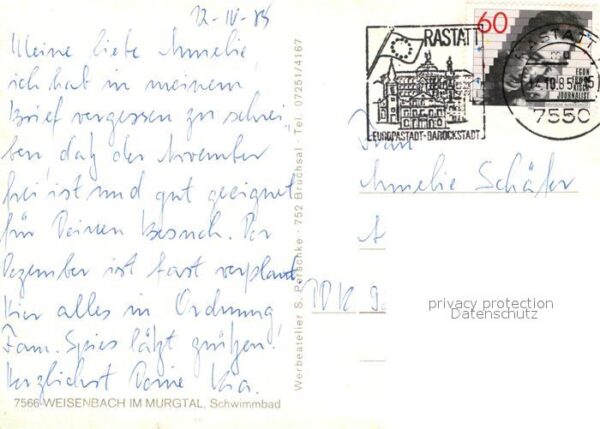 12-IV-85
Meine liebe Amelie,
ich hab in meinem
Brief vergessen zu schrei-
ben, daß der November
frei ist und gut geeignet
für Deinen Besuch. Der
Dezember ist fast verplant.
Hier alles in Ordnung!
Fam. Spies läßt grüßen!
Herzlichst Deine
7566 WEISENBACH IM MURGTAL, Schwimmbad
Werbeatelier S. Perschke · 752 Bruchsal · Tel. 07251/4167
RASTATT
EUROPASTADT-BAROCKSTADT
60
EGON
ERWIN
KISCH
JOURNALIST
RASTATT
10.85
7550
Frau
Amelie Schäfer
A
privacy protection
Datenschutz